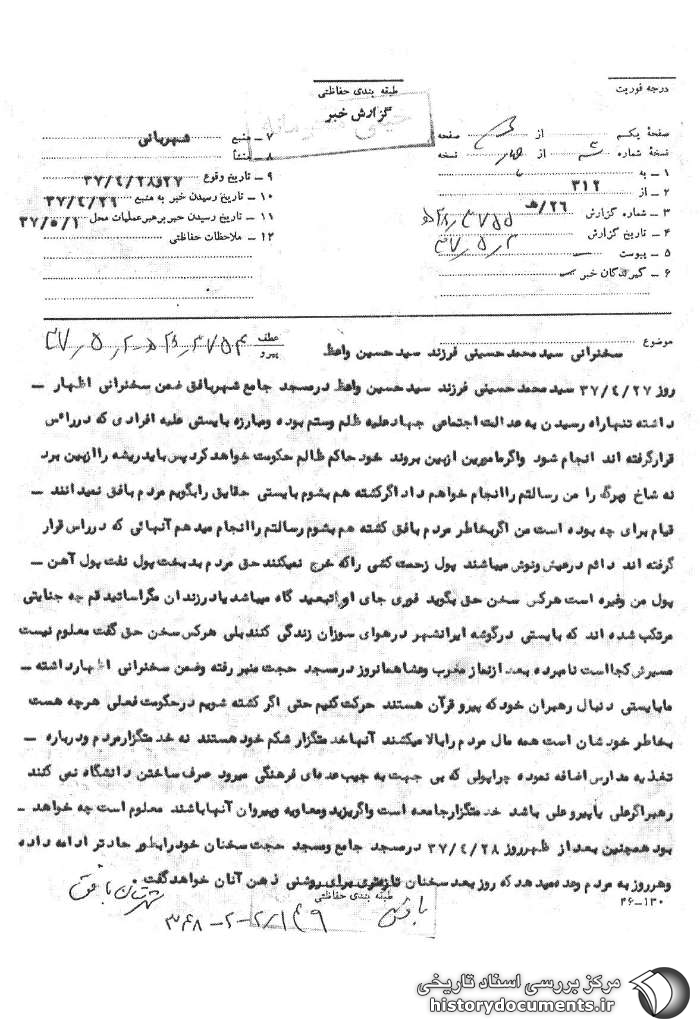 درجه فوریت
طبقه بندی حفاظتی
گزارش خبر
صفحهٔ یکم از صفحه
نسخهٔ شماره از نسخه
۱ ـ به
۲ ـ از ۳۱۲
۳ ـ شماره گزارش ۲۶/ه‍
۴ ـ تاریخ گزارش ۳۷/۵/۳
۵ ـ پیوست
۶ ـ گیرندگان خبر
۷ ـ منبع شهربانی
۸ ـ منشأ
۹ ـ تاریخ وقوع ۲۷و۳۷/۴/۲۸
۱۰ ـ تاریخ رسیدن خبر به منبع ۳۷/۴/۲۹
۱۱ ـ تاریخ رسیدن خبر برهبر عملیات محل ۳۷/۵/۱
۱۲ ـ ملاحظات حفاظتی
موضوع
عطف
پیرو
سخنرانی سید محمد حسینی فرزند سید حسین واعظ
روز ۳۷/۴/۲۷ سید محمد حسینی فرزند سید حسین واعظ درمسجد جامع شهربافق ضمن سخنرانی اظهار ـ
داشته تنهاراه رسیدن به عدالت اجتماعی جهادعلیه ظلم وستم بوده ومبارزه بایستی علیه افرادی که درراس
قرارگرفته اند انجام شود واگرمامورین ازبین بروند خود حاکم ظالم حکومت خواهد کرد پس باید ریشه را ازبین برد
نه شاخ وبرگ را من رسالتم را انجام خواهم داد اگرکشته هم بشوم بایستی حقایق رابگویم مردم بافق نمیدانند ـ
قیام برای چه بوده است من اگربخاطر مردم بافق کشته هم بشوم رسالتم راانجام میدهم آنهائی که درراس قرار
گرفته اند دائم درعیش ونوش میباشند پول زحمت کشی راکه خرج نمیکنند حق مردم بدبخت پول نفت پول آهن ـ
پول من وغیره است هرکس سخن حق بگوید فوری جای او تبعید گاه میباشد یادرزندان مگراساتید قم چه جنایتی
مرتکب شده اند که بایستی درگوشه ایرانشهر درهوای سوزان زندگی کنند بلی هرکس سخن حق گفت معلوم نیست
مسیرش کجااست نامبرده بعد ازنماز مغرب وعشاهمانروز درمسجد حجت منبر رفته وضمن سخنرانی اظهارداشته ـ
مابایستی دنبال رهبران خود که پیرو قرآن هستند حرکت کنیم حتی اگر کشته شویم درحکومت فعلی هرچه هست
بخاطر خودشان است همه مال مردم رابالا میکشند آنهاخدمتگزار شکم خود هستند نه خدمتگزارمردم ودرباره ـ
تغذیه مدارس اضافه نموده چراپولی که بی جهت به جیب عده‌ای فرهنگی میرود صرف ساختن دانشگاه نمی کنند
رهبراگرعلی یاپیروعلی باشد خدمتگزارجامعه است واگریزید ومعاویه وپیروان آنهاباشند معلوم است چه خواهد ـ
بود همچنین بعد از ظهرروز ۳۷/۴/۲۸ درمسجد جامع ومسجد حجت سخنان خود رابطور حادتر ادامه داده
وهرروز به مردم وعده میدهد که روز بعد سخنان تازه‌تری برای روشنی ذهن آنان خواهد گفت.
طبقه بندی حفاظتی
۴۶-۱۳۰
شهرستان بافق
بافق
مرکز بررسی اسناد تاریخی
historydocuments.ir